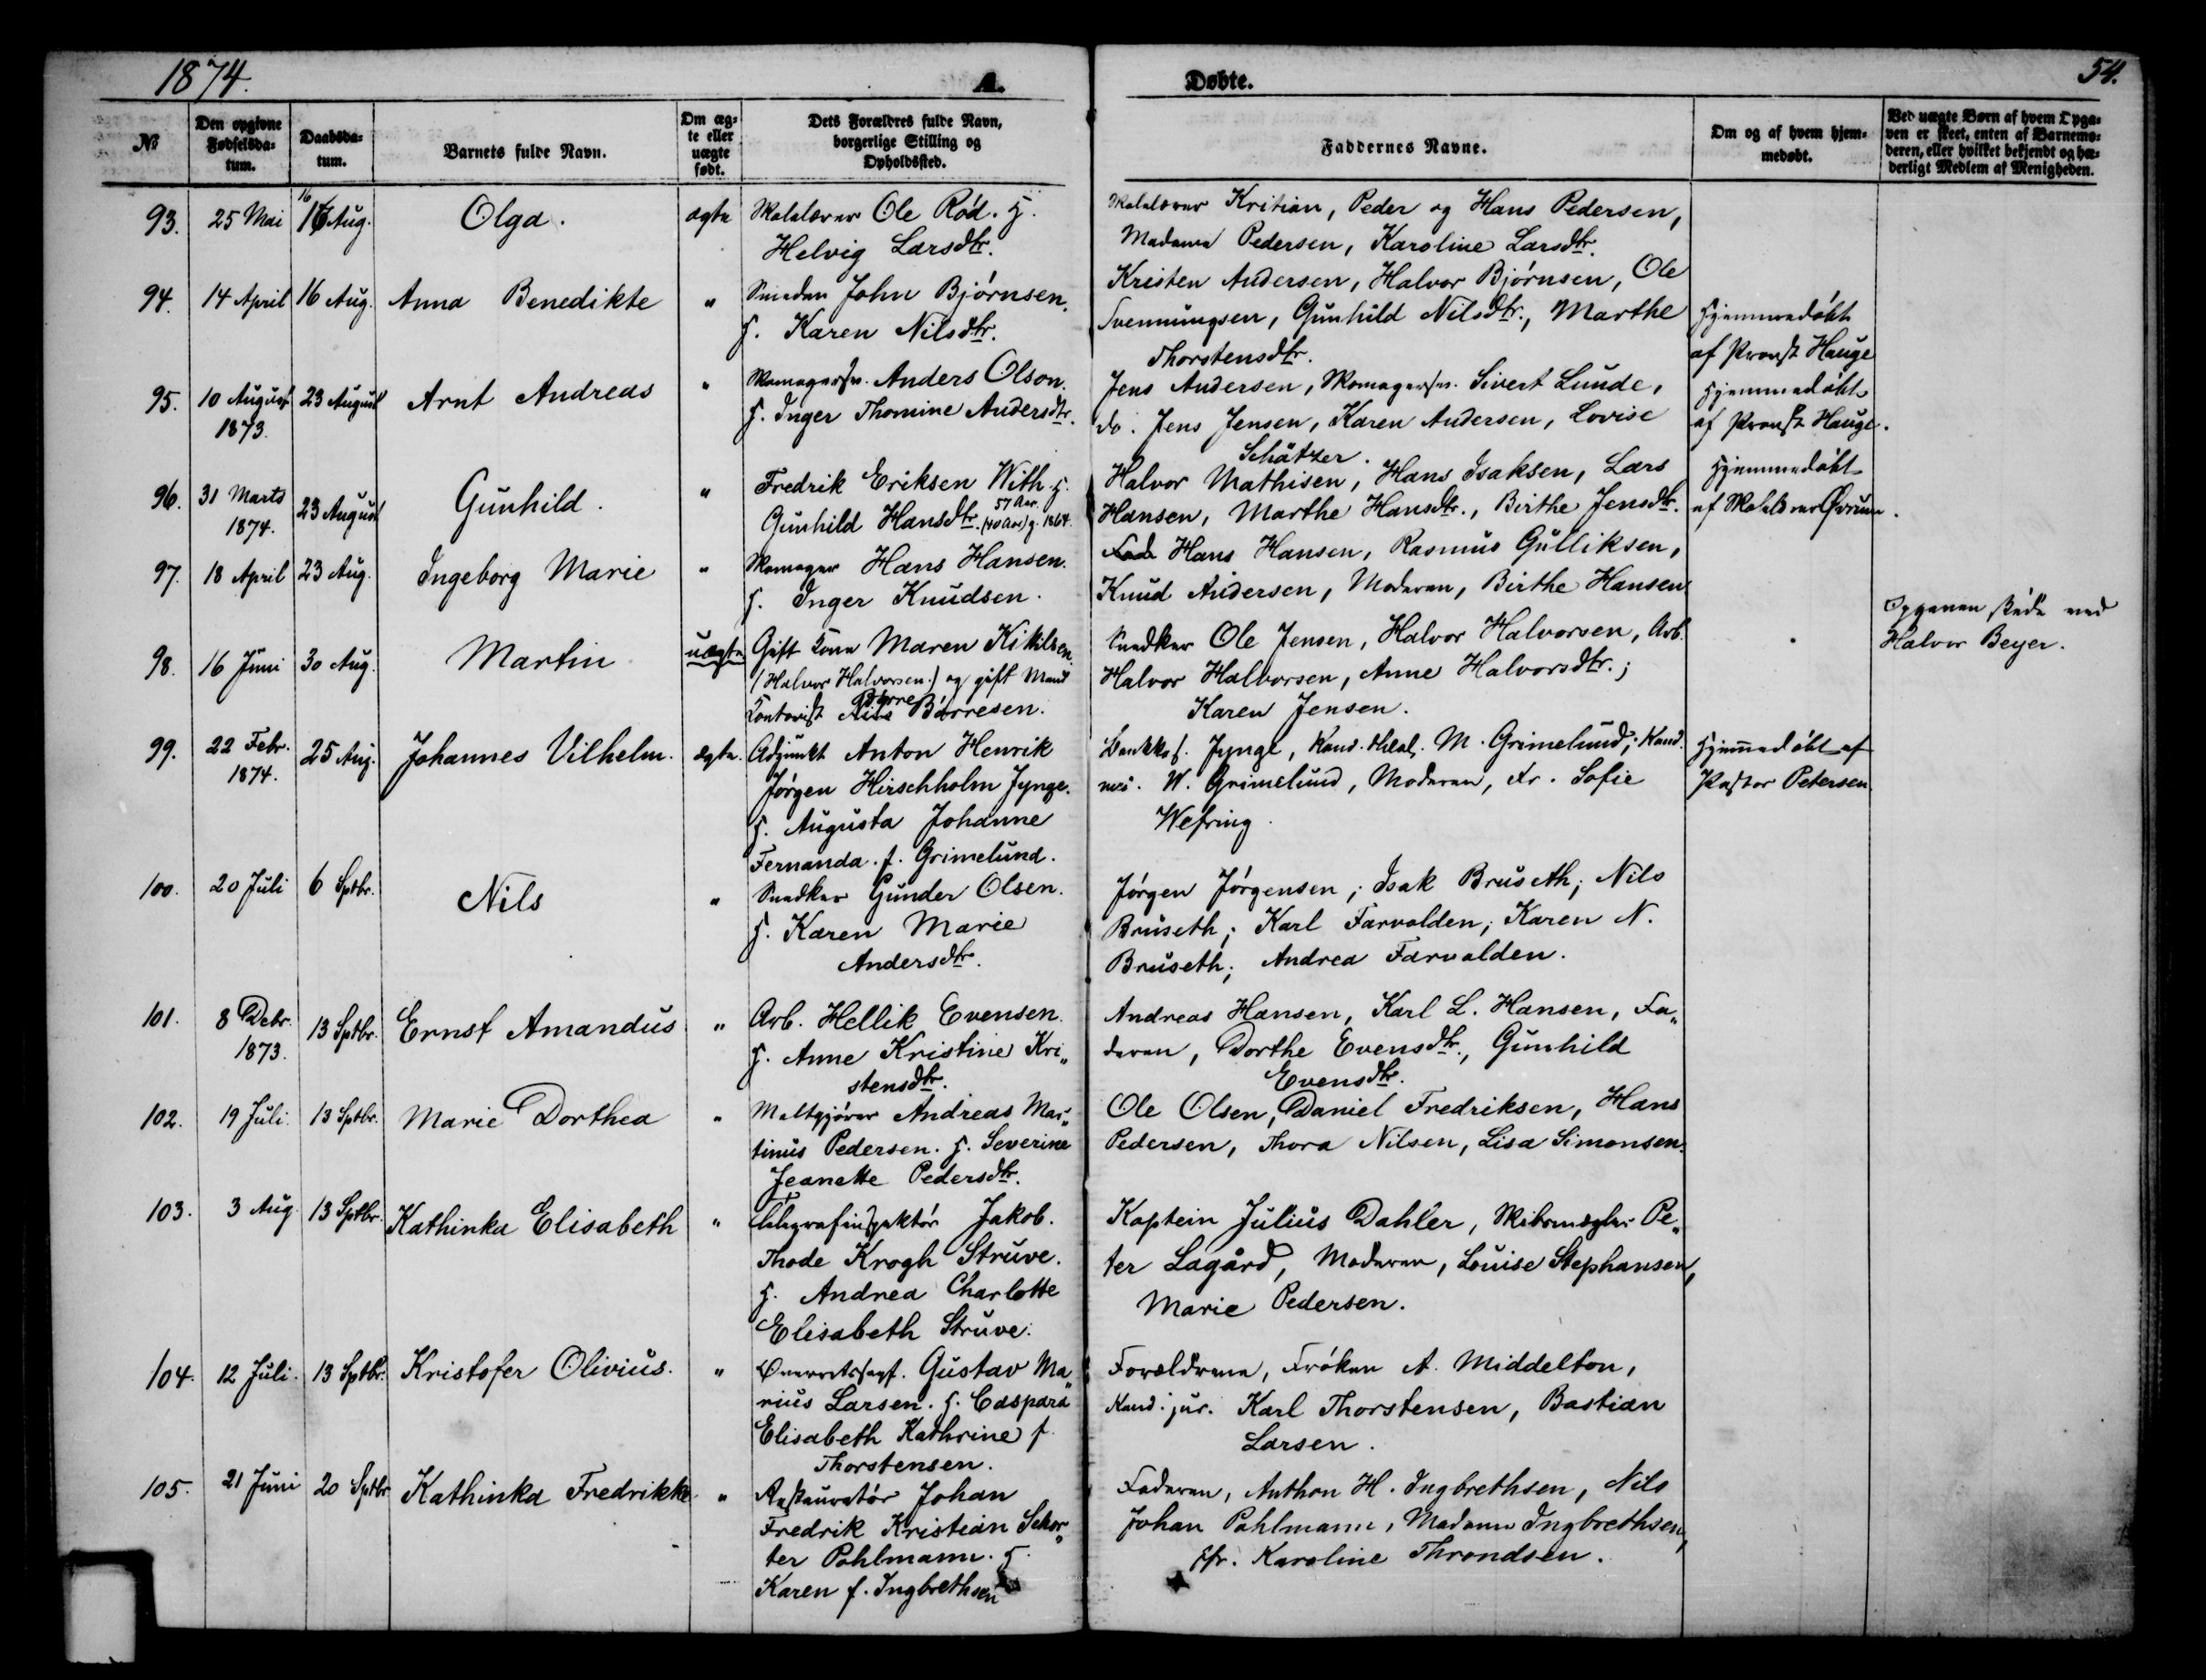 1874.
A.
Døbte.
54.
No
Den opgivne Fødselsda-tum.
Daabsda-tum.
Barnets fulde Navn.
Om æg-te eller uægte født.
Dets Forældres fulde Navn, borgerlige Stilling og Opholdssted.
Faddernes Navne.
Om og af hvem hjem-medøbt.
Ved uægte Børn af hvem Opga-ven er skeet, enten af Barnemo-deren, eller hvilket bekjendt og hæ-derligt Medlem af Menigheden.
93. 25 Mai 16 Aug. Olga. ægte
Skolelærer Ole Rød. H.
Helvig Larsdtr.
Skolelærer Kritian, Peder og Hans Pedersen,
Madame Pedersen, Karoline Larsdtr.
94. 14 April 16 Aug. Anna Benedikte "
Smeden John Bjørnsen.
H. Karen Nilsdtr.
Kristen Andersen, Halvor Bjørnsen, Ole
Svennungsen, Gunhild Nilsdtr., Marthe
Thorstensdtr.
Hjemmedøbt
af Provst Hauge
95. 10 August 1873. 23 August Arnt Andreas "
Skomagersv. Anders Olson.
H. Inger Thomine Andersdtr.
Jens Andersen, Skomagersv. Sivert Lunde,
do. Jens Jensen, Karen Andersen, Lovise
Schätzer.
Hjemmedøbt
af Provst Hauge.
96. 31 Marts 1874. 23 August Gunhild. "
Fredrik Eriksen With. H.
57 Aar.
Gunhild Hansdtr. (40 Aar) g. 1864.
Halvor Mathisen, Hans Isaksen, Lars
Hansen, Marthe Hansdtr., Birthe Jensdtr.
Hjemmedøbt
af Skolelærer Øvrum.
97. 18 April 23 Aug. Ingeborg Marie "
Skomager Hans Hansen.
H. Inger Knudsen.
Hans Hansen, Rasmus Gulliksen,
Knud Andersen, Moderen, Birthe Hansen
98. 16 Juni 30 Aug. Martin uægte
Gift Kone Maren Kikilsen.
(Halvor Halvorsen.) og gift Mand
Kontorist Børre Børresen.
Snedker Ole Jensen, Halvor Halvorsen, Arb.
Halvor Halvorsen, Anne Halvorsdtr.;
Karen Jensen.
Opgaven skede ved
Halvor Beyer.
99. 22 Febr. 1874. 25 Aug. Johannes Vilhelm. ægte.
Adjunkt Anton Henrik
Jørgen Hirschholm Jynge.
H. Augusta Johanne
Fernanda. f. Grimelund.
Bankkas. Jynge, Kand. theol. M. Grimelund; Kand.
W. Grimelund, Moderen, Fr. Sofie
Wefring.
Hjemmedøbt af
Pastor Petersen
100. 20 Juli 6 Sptbr. Nils "
Snedker Gunder Olsen.
H. Karen Marie
Andersdtr.
Jørgen Jørgensen; Isak Bruseth; Nils
Bruseth; Karl Farvolden; Karen N.
Bruseth; Andrea Farvolden.
101. 8 Debr. 1873. 13 Sptbr. Ernst Amandus "
Arb. Hellik Evensen.
H. Anne Kristine Kri„
stensdtr.
Andreas Hansen, Karl L. Hansen, Fa„
deren, Dorthe Evensdtr., Gunhild
Evensdtr.
102. 19 Juli. 13 Sptbr. Marie Dorthea "
Maltgjører Andreas Mar„
tinus Pedersen. H. Severine
Jeanette Pedersdtr.
Ole Olsen, Daniel Fredriksen, Hans
Pedersen, Thora Nilsen, Lisa Simonsen.
103. 3 Aug 13 Sptbr. Kathinka Elisabeth "
Telegrafinspektør Jakob.
Thode Krogh Struve.
H. Andrea Charlotte
Elisabeth Struve.
Kaptein Julius Dahler, Skibsmægler Pe„
ter Lagård, Moderen, Louise Stephansen,
Marie Pedersen.
104. 12 Juli. 13 Sptbr. Kristofer Olivius. "
Overretssagf. Gustav Ma„
rius Larsen. H. Caspara
Elisabeth Kathrine f.
Thorstensen.
Forældrene, Frøken A. Middelton,
Kand. jur. Karl Thorstensen, Bastian
Larsen.
105. 21 Juni 20 Sptbr Kathinka Fredrikke "
Restauratør Johan
Fredrik Kristian Schar„
ter Pohlmann. H.
Karen f. Ingbrethsen
Faderen, Anthon H. Ingbrethsen, Nils
Johan Pohlmann, Madame Ingbrethsen,
Jfr. Karoline Throndsen.